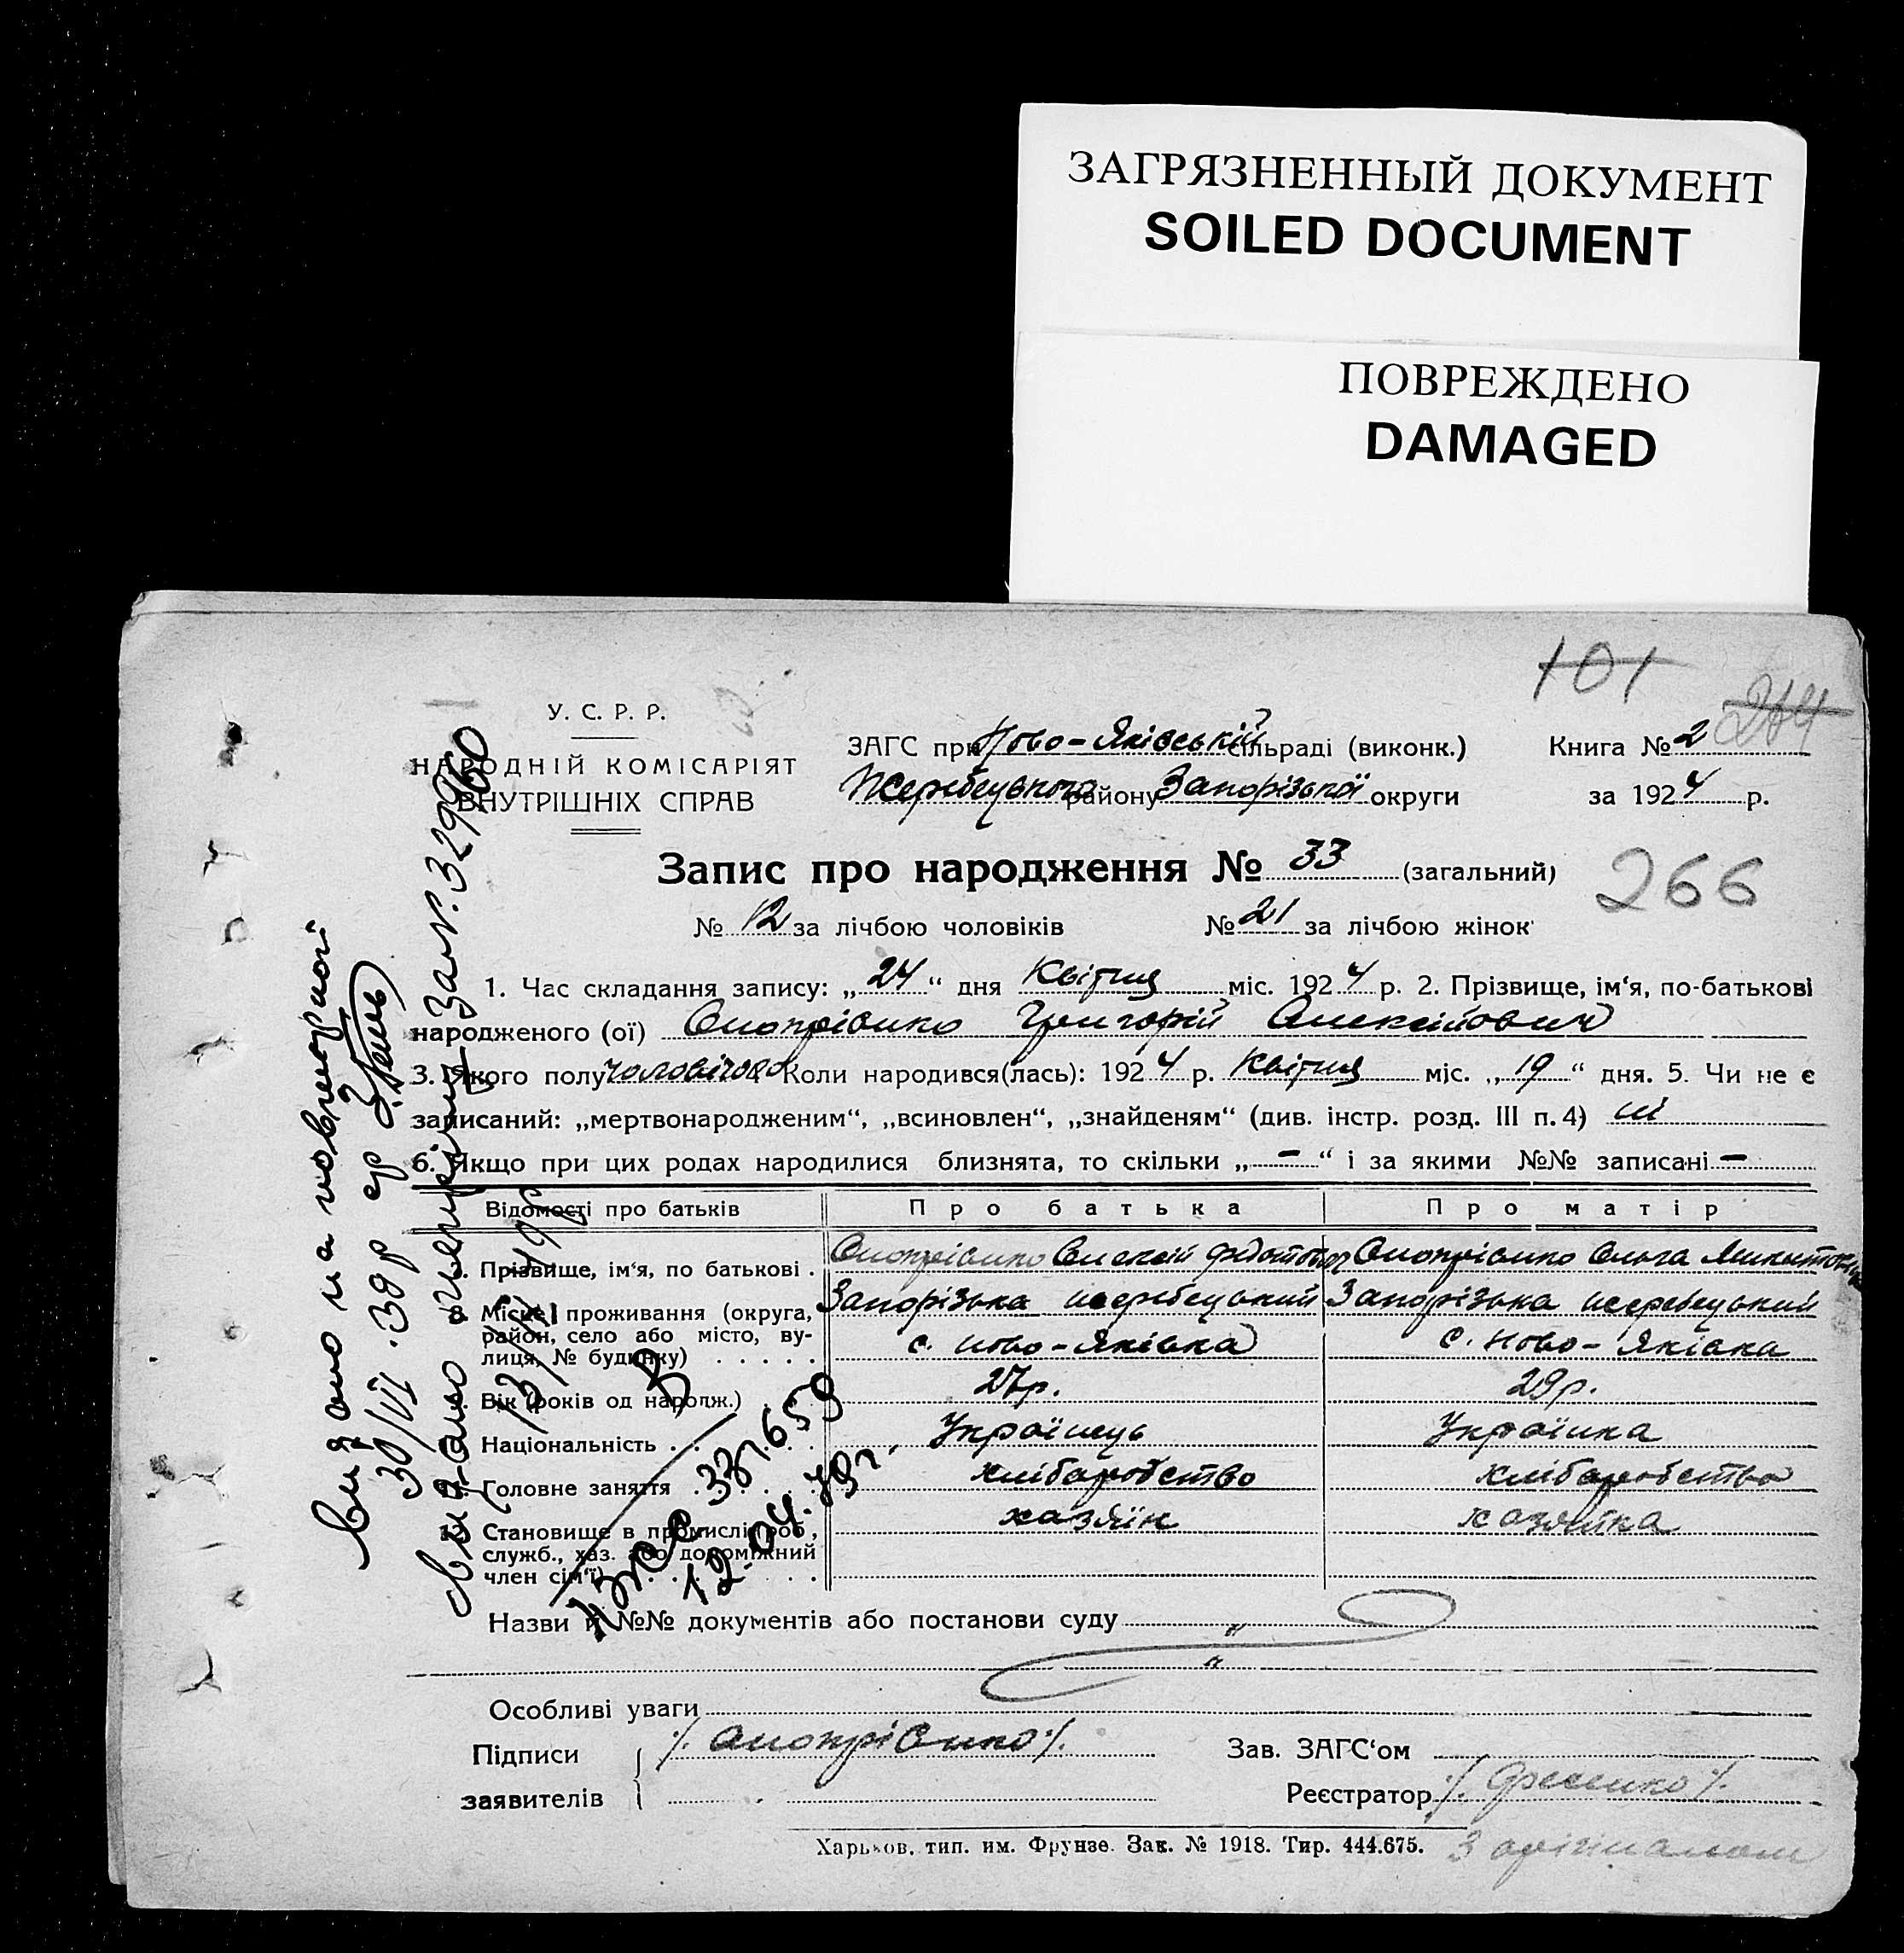 ЗАГРЯЗНЕННЫЙ ДОКУМЕНТ
SOILED DOCUMENT
ПОВРЕЖДЕНО
DAMAGED
101
264
У. С. Р. Р.
НАРОДНІЙ КОМІСАРІЯТ
ВНУТРІШНІХ СПРАВ
ЗАГС при Ново-Яківській сільраді (виконк.)
Книга № 2
Жеребецького району Запорізької округи
за 1924 р.
Запис про народження № 33 (загальний)
266
№ 12 за лічбою чоловіків № 21 за лічбою жінок
1. Час складання запису: „24“ дня Квітня міс. 1924 р. 2. Прізвище, ім‘я, по-батькові
народженого (ої) Онопрієнко Григорій Олексійович
3. Якого полу чоловічого Коли народився(лась): 1924 р. Квітня міс. „19“ дня. 5. Чи не є
записаний: „мертвонародженим“, „всиновлен“, „знайденям“ (див. інстр. розд. III п. 4) ні
6. Якщо при цих родах народилися близнята, то скільки „—“ і за якими №№ записані —
Відомості про батьків Про батька Про матір
Прізвище, ім‘я, по батькові . Онопрієнко Олексій Федотович Онопрієнко Ольга Микитовна
8. Місце проживання (округа, Запорізька жеребецький Запорізька жеребецький
район, село або місто, ву-
лиця, № будинку) . . . . . с. Ново-Яківка с. Ново-Яківка
Вік (років од народж.) 27р. 29р.
Національність . . . . Українець Українка
Головне заняття . . . . хліборобство хліборобство
Становище в промислі, роб., хазяїн хазяйка
служб., хаз. або допоміжний
член сім‘ї)
Назви й №№ документів або постанови суду „
„
Особливі уваги
Підписи /. Онопрієнко /.
заявителів
Зав. ЗАГС‘ом
Реєстратор /. Фесенко /.
Харьков. тип. им. Фрунзе. Зак. № 1918. Тир. 444.675.
З орігіналом
Видано на повторної
30/VI.39р ср
Видано
За №. 329960
337659
12.04.79г.